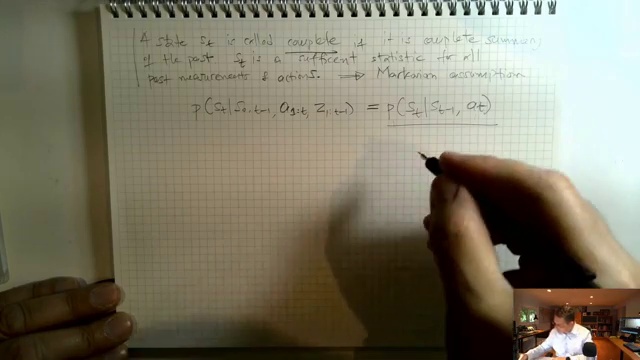 A state St is called complete if it is complete summary
of the past St is a sufficent statistic for all
past measurements & actions. ⟹ Markovian assumption
p(St|S0:t-1, a1:t, z1:t-1) = p(St|St-1, at)